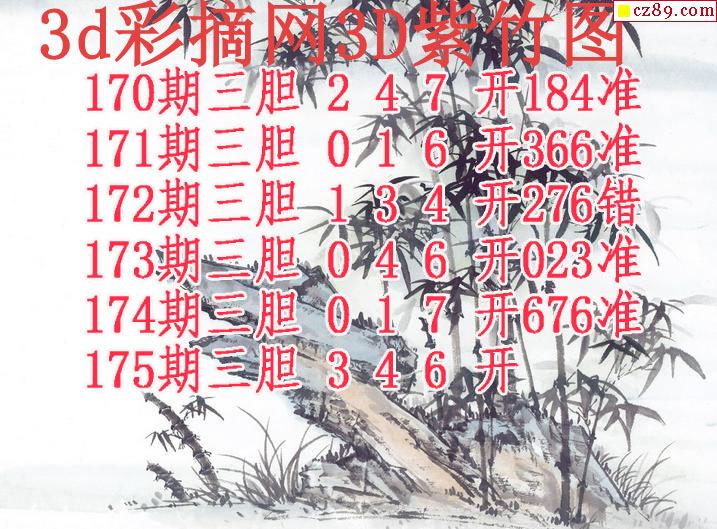 cz89.com
3d彩摘网3D紫竹图
170期三胆 2 4 7 开184准
171期三胆 0 1 6 开366准
172期三胆 1 3 4 开276错
173期三胆 0 4 6 开023准
174期三胆 0 1 7 开676准
175期三胆 3 4 6 开